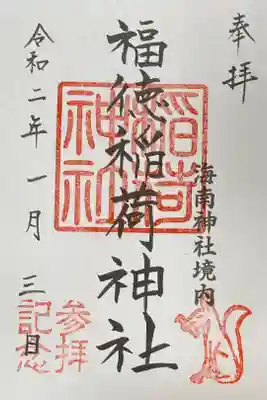 奉拝
海南神社境内
福徳稲荷神社
稲荷神社
令和二年一月三日
参拝
記念